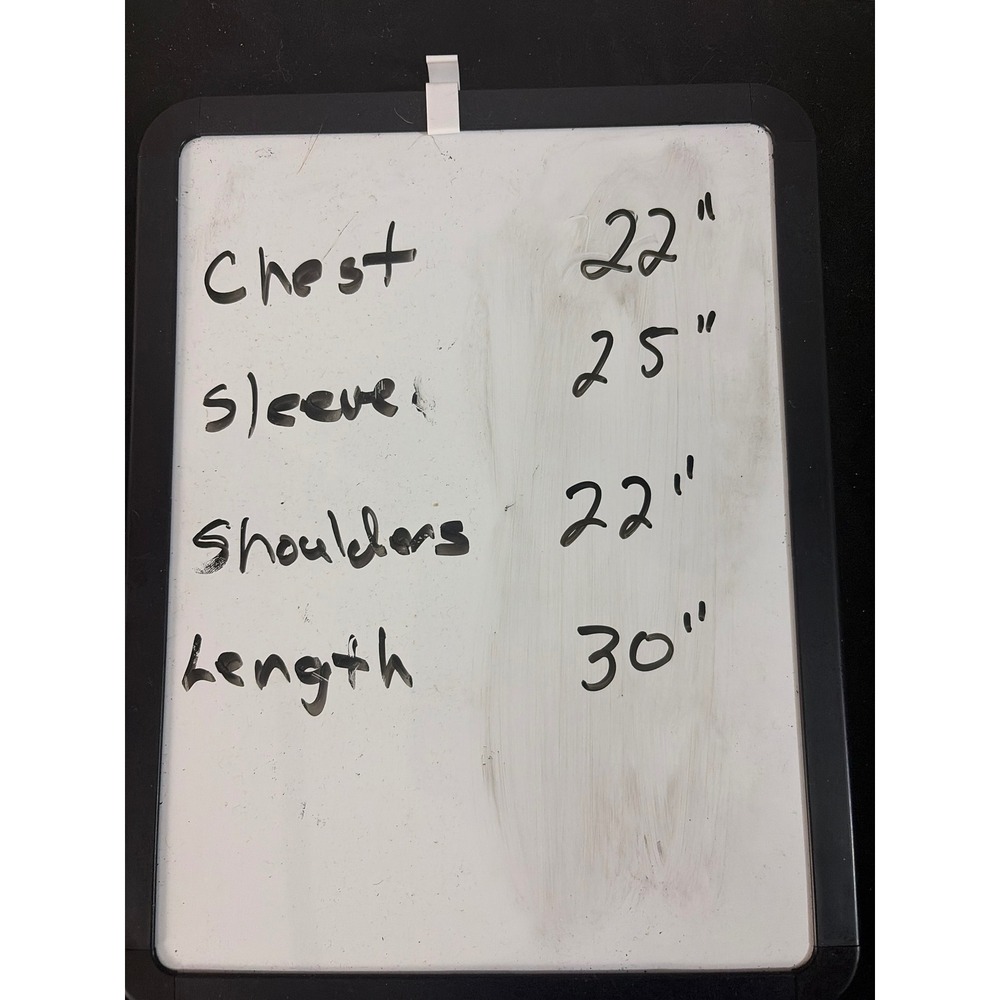 Chest 22"
Sleeve 25"
Shoulders 22"
Length 30"